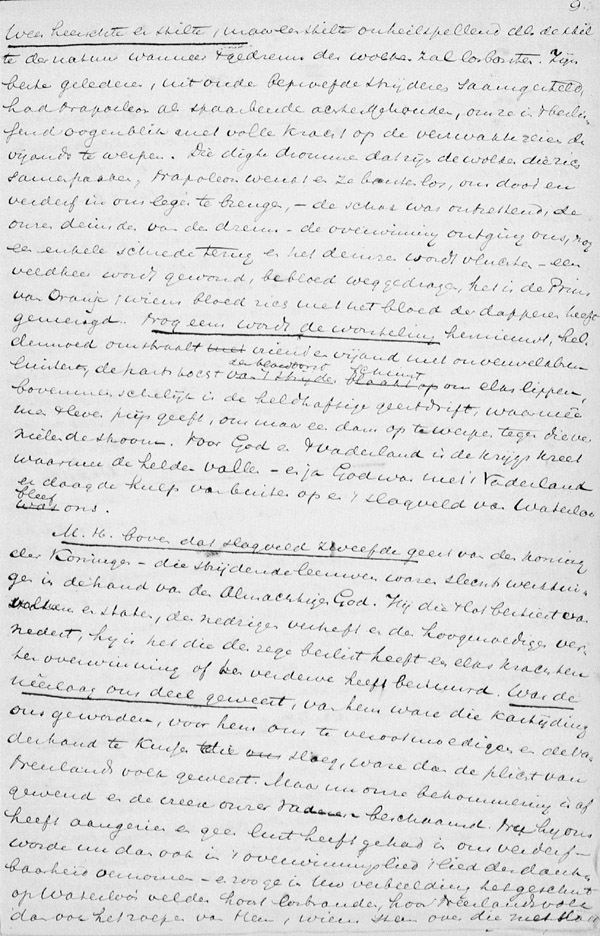 9
Weer heerschte er stilte, maar een stilte onheilspellend als de stil
te der natuur wanneer 't gedreun der wolken zal losbarsten. Zijn
beste gelederen, uit oude beproefde strijders saamgesteld,
had Napoleon als spaarbende achtergehouden, om ze in 't beslis
send oogenblik met volle kracht op de verzwakte rijen des
vijands te werpen. Die digte drommen dat zijn de wolken die zich
samenpakken; Napoleon wenst en ze barsten los, om dood en
verderf in ons leger te brengen, – de schok was ontzettend, de
onzen deinsden van den dreun – de overwinning ontging ons, nog
een enkele schrede terug en het deinzen wordt vluchten – een
veldheer wordt gewond, bebloed weggedragen, het is de Prins
van Oranje, wiens bloed zich met het bloed der dapperen heeft
gemengd. Nog eens wordt de worsteling hernieuwd, hel
denmoed omstraalt vriend en vijand met onverwelkbren
luister,
bovenmenschelijk is de heldhaftige geestdrift, waarmêe
men 't leven prijs geeft, om maar een dam op te werpen tegen die ver
nielende stroom. Voor God en Vaderland is de krijgskreet
waarmee de helden vallen – en ja God was met 't Vaderland
er daagde hulp van buiten op en 't slagveld van Waterloo
bleef ons.
M. H. boven dat slagveld zweefde geest van den Koning
der Koningen – die strijdende leeuwen waren slechts werktui-
gen in de hand van den Almachtigen God. Hij die 't lot bestiert van
volken en staten, den nedrigen verheft en den hoogmoedigen ver-
nedert, hij is het die de zege beslist heeft en elks krachten
ter overwinning of ten verderve heeft bestuurd. Was de
nêerlaag ons deel geweest, van hem ware die kastijding
ons geworden, voor hem ons te verootmoedigen en de va
derhand te kussen die sloeg, ware dan de plicht van
Neerlands volk geweest. Maar nu onze bekommering is af
gewend en de vrees onzer Vaderen beschaamd. Nu hij ons
heeft aangezien en geen lust heeft gehad in ons verderf –
worde nu dan ook in 't overwinningslied 't lied der dank-
baarheid vernomen – en zooge in Uw verbeelding het geschut
op Waterloos velden hoort losbranden, hoor Neerlands volk
dan ook het roepen van Hem, wiens stem over die